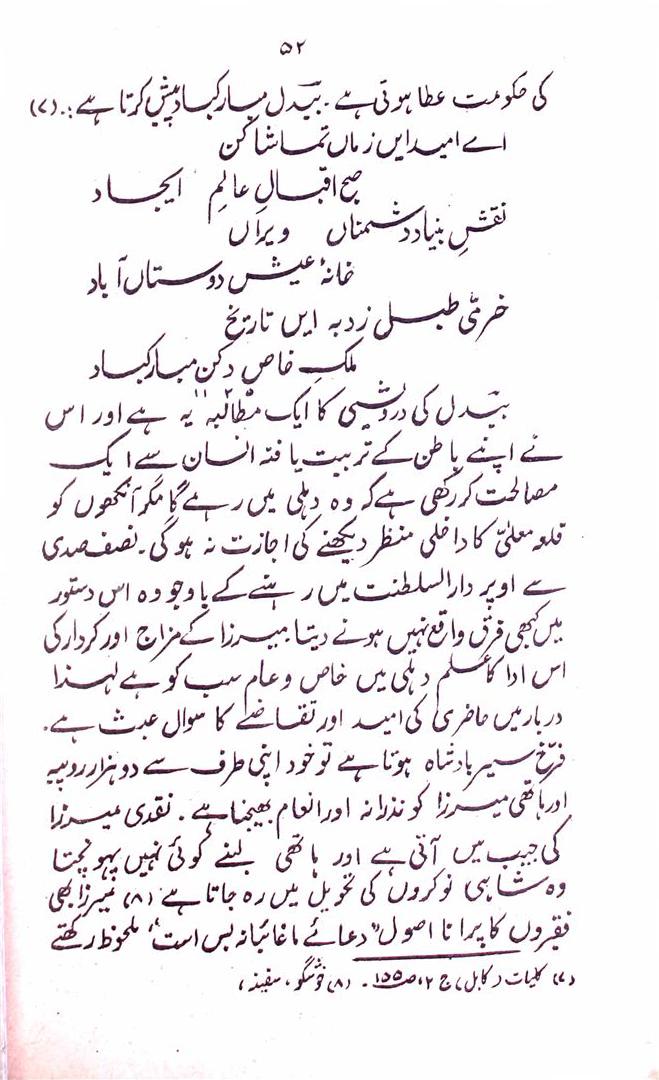 ۵۲
کی حکومت عطا ہوتی ہے۔ بیدل مبارکباد پیش کرتا ہے:۔ (۷)
اے امید ایں زماں تماشا کن
صبح اقبالِ عالمِ ایجاد
نقشِ بنیاد دشمناں ویراں
خانۂ عیش دوستاں آباد
خرمی طبلی زد بہ ایں تاریخ
ملکِ خاص دکن مبارکباد
بیدل کی درویشی کا ایک مطالبہ یہ ہے اور اس
نے اپنے باطن کے تربیت یافتہ انسان سے ایک
مصالحت کر رکھی ہے کہ وہ دہلی میں رہے گا مگر آنکھوں کو
قلعہ معلیٰ کا داخلی منظر دیکھنے کی اجازت نہ ہوگی۔ نصف صدی
سے اوپر دارالسلطنت میں رہنے کے باوجود وہ اس دستور
میں کبھی فرق واقع نہیں ہونے دیتا۔ میرزا کے مزاج اور کردار کی
اس ادا کا علم دہلی میں خاص و عام سب کو ہے لہٰذا
دربار میں حاضری کی امید اور تقاضے کا سوال عبث ہے۔
فرّخ سیر بادشاہ ہوتا ہے تو خود اپنی طرف سے دو ہزار روپیہ
اور ہاتھی میرزا کو نذرانہ اور انعام بھیجتا ہے۔ نقدی میرزا
کی جیب میں آتی ہے اور ہاتھی لینے کوئی نہیں پہونچتا
وہ شاہی نوکروں کی تحویل میں رہ جاتا ہے (۸) میرزا بھی
فقیروں کا پرانا اصول "دعائے ما غائبانہ بس است" ملحوظ رکھتے
(۷) کلیات (کابل) ج ۲، ص ۱۵۵۔ (۸) خوشگو، سفینہ،